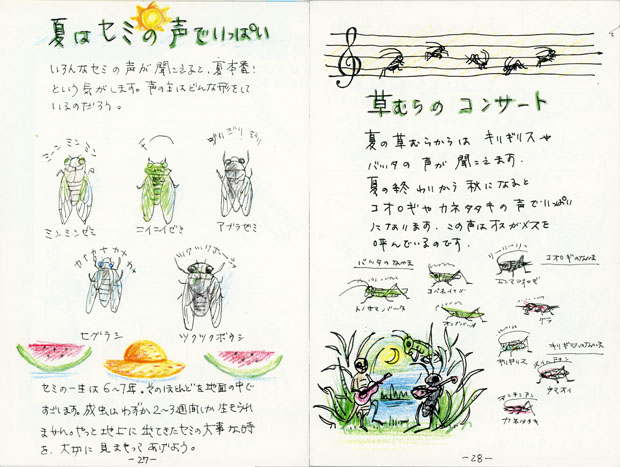 夏はセミの声でいっぱい
いろんなセミの声が聞こえると、夏本番!
という気がします。声の主はどんな形をして
いるのだろう。
ミーン ミン ミン
ミンミンゼミ
ニイニイゼミ
アブラゼミ
カナカナカナ
ヒグラシ
ツクツクボーシ
ツクツクボウシ
セミの一生は6〜7年。そのほとんどを地面の中で
すごします。成虫はわずか2〜3週間しか生きられ
ません。やっと地上に出てきたセミの大事な時
を、大切に見まもってあげよう。
-27-
草むらのコンサート
夏の草むらからは キリギリスや
バッタの声が聞こえます。
夏の終わりから秋になると
コオロギやカネタタキの声でいっぱい
になります。この声はオスがメスを
呼んでいるのです。
バッタのなかま
トノサマバッタ
オンブバッタ
リーリーリー
コオロギのなかま
エンマコオロギ
ケラ
キリギリスのなかま
キリギリス
スイーッチョン
ウマオイ
チンチンチン
カネタタキ
-28-